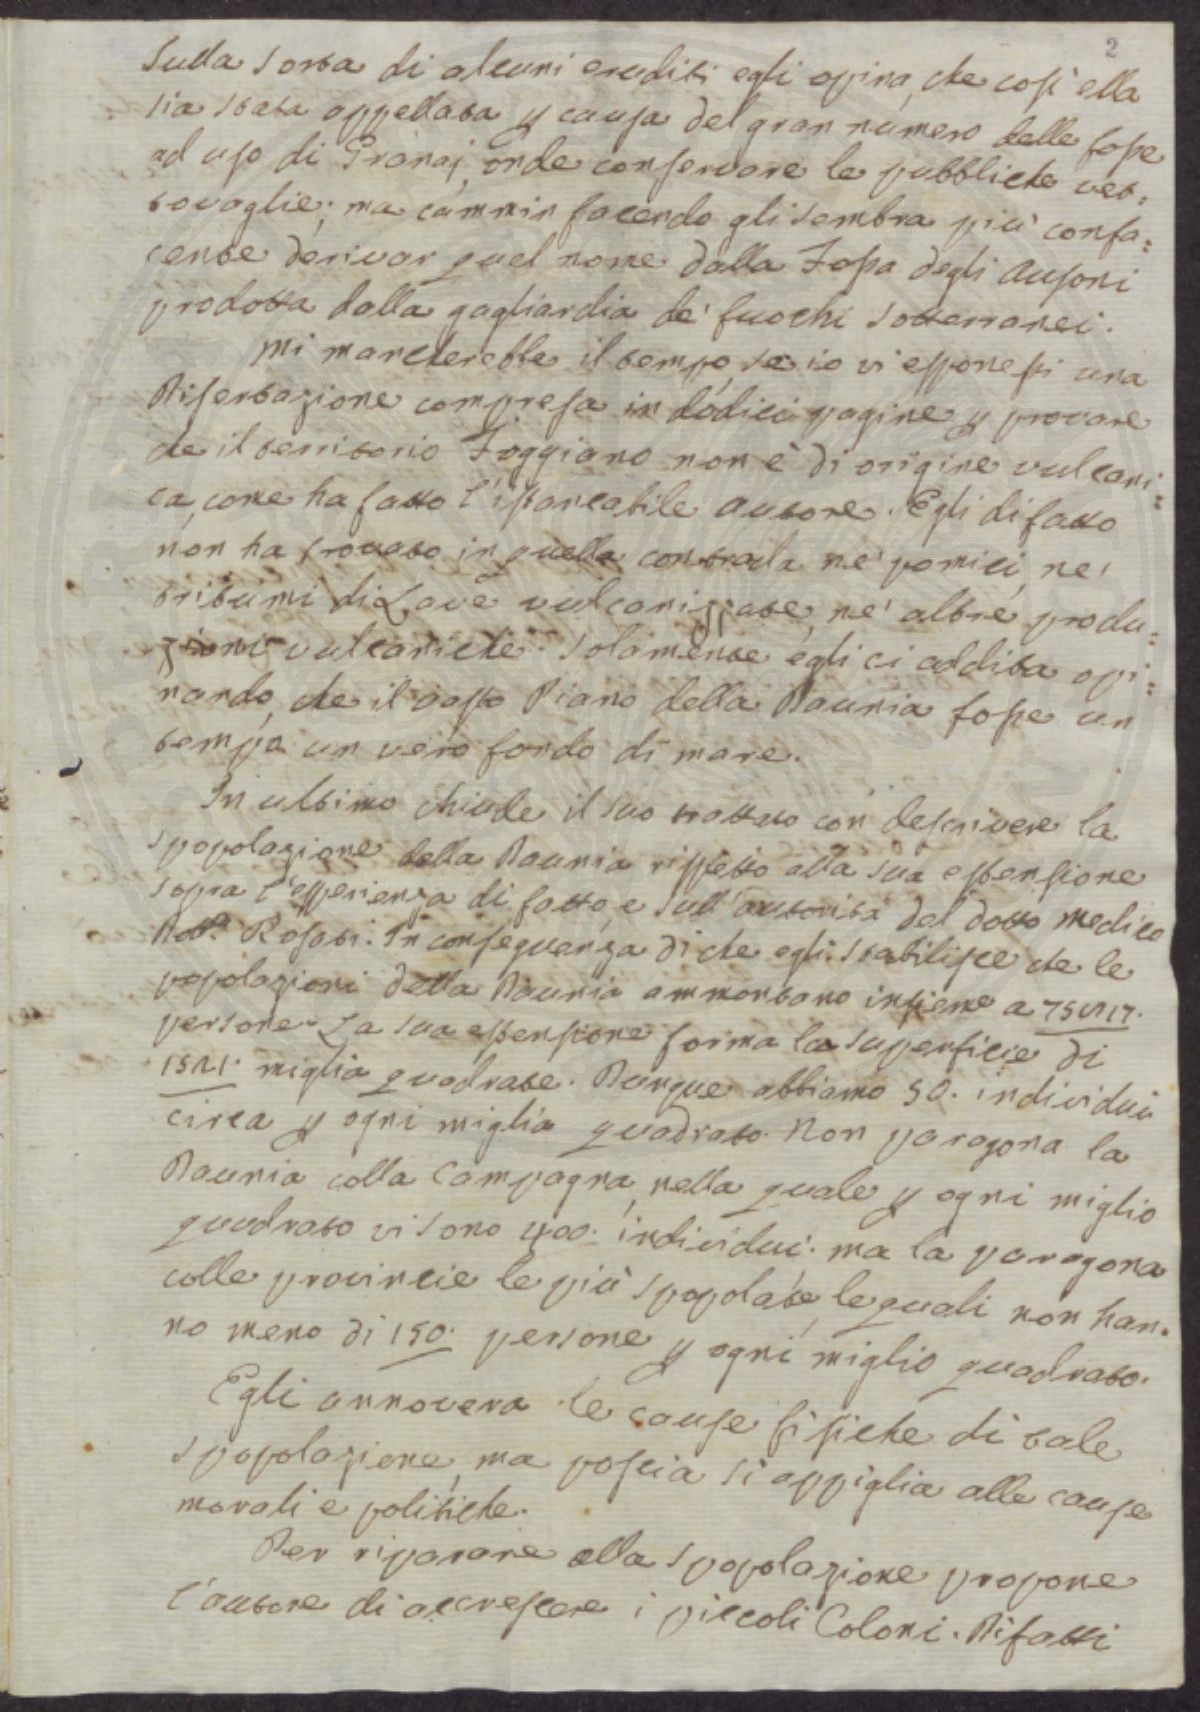 2
Sulla scorta di alcuni eruditi egli opina, che così ella
sia stata appellata p causa del gran numero delle fosse
ad uso di Granaj, onde conservare le pubbliche vet:
tovaglie; ma cammin facendo gli sembra più confa:
cente derivar quel nome dalla Fossa degli Ausoni
prodotta dalla gagliardia de' fuochi sotterranei.
Mi mancherebbe il tempo, se io vi esponessi una
Dissertazione compresa in dodici pagine p provare
che il territorio Foggiano non è di origine vulcani:
ca, come ha fatto l'istancabile autore. Egli di fatto
non ha trovato in quella contrada nè pomici, nè
tritumi di Lave vulcanizzate, nè altre produ:
zioni vulcaniche. Solamente egli ci addita opi:
nando, che il vasto Piano della Daunia fosse un
tempo un vero fondo di mare.
In ultimo chiude il suo trattato con descrivere la
spopolazione della Daunia rispetto alla sua estensione
sopra l'esperienza di fatto, e sull'autorità del dotto medico
Dott. Rosati. In conseguenza di che egli stabilisce che le
popolazioni della Daunia ammontano insieme a
persone. La sua estensione forma la superficie di
1521. miglia quadrate. Dunque abbiamo 50. individui
circa p ogni miglia quadrato. Non paragona la
Daunia colla Campagna, nella quale p ogni miglio
quadrato vi sono 400. individui; ma la paragona
colle provincie le più spopolate, le quali non han:
no meno di 150. persone p ogni miglio quadrato.
Egli annovera le cause fisiche di tale
spopolazione, ma poscia si appiglia alle cause
morali e politiche.
Per riparare alla spopolazione propone
l'autore di accrescere i piccoli Coloni. Difatti